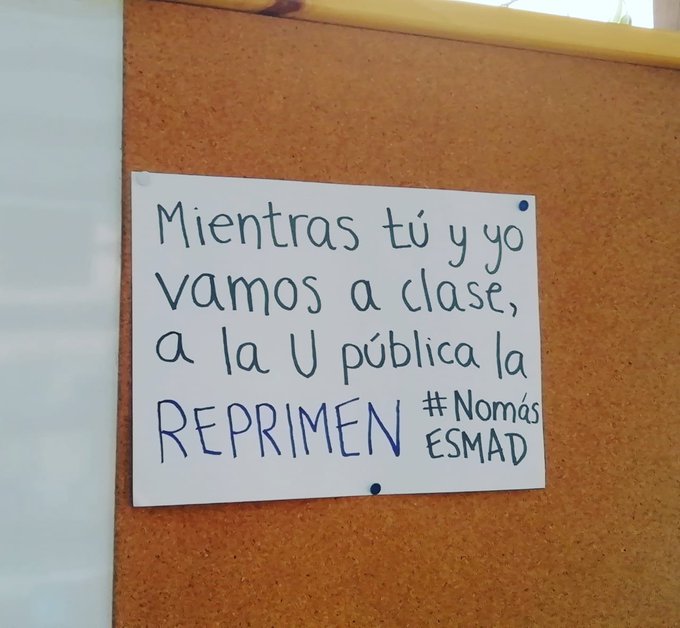 Mientras tú y yo
vamos a clase,
a la U pública la
REPRIMEN #Nomás
ESMAD